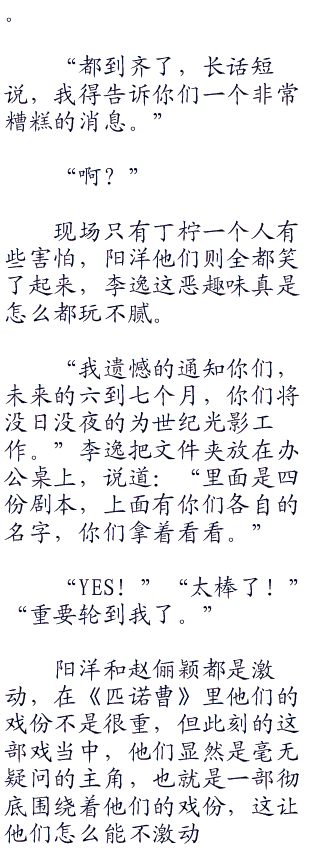 。
“都到齐了，长话短
说，我得告诉你们一个非常
糟糕的消息。”
“啊？”
现场只有丁柠一个人有
些害怕，阳洋他们则全都笑
了起来，李逸这恶趣味真是
怎么都玩不腻。
“我遗憾的通知你们，
未来的六到七个月，你们将
没日没夜的为世纪光影工
作。”李逸把文件夹放在办
公桌上，说道：“里面是四
份剧本，上面有你们各自的
名字，你们拿着看看。”
“YES！”“太棒了！”
“重要轮到我了。”
阳洋和赵俪颖都是激
动，在《匹诺曹》里他们的
戏份不是很重，但此刻的这
部戏当中，他们显然是毫无
疑问的主角，也就是一部彻
底围绕着他们的戏份，这让
他们怎么能不激动